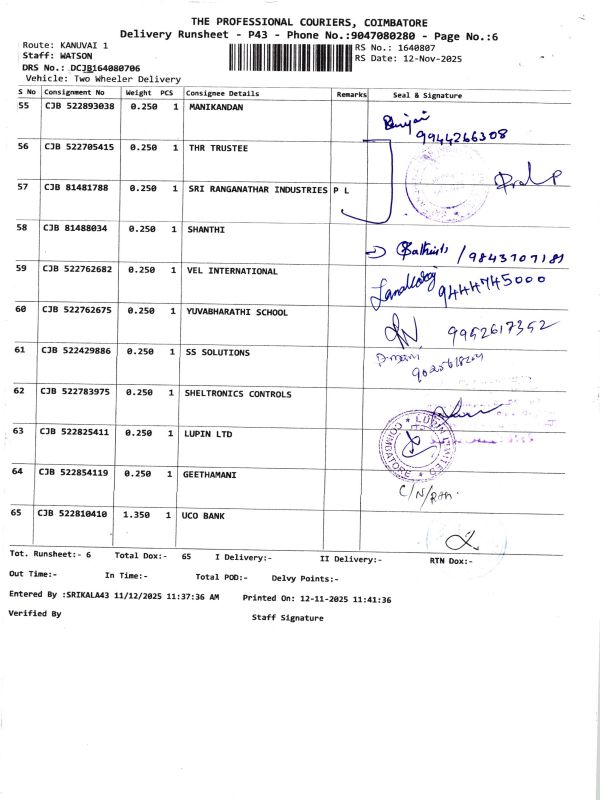 THE PROFESSIONAL COURIERS, COIMBATORE
Delivery Runsheet - P43 - Phone No.:9047080280 - Page No.:6
Route: KANUVAI 1
RS No.: 1640807
Staff: WATSON
RS Date: 12-Nov-2025
DRS No.: DCJB164080706
Vehicle: Two Wheeler Delivery
S No Consignment No Weight PCS Consignee Details Remarks Seal & Signature
55 CJB 522893038 0.250 1 MANIKANDAN
9944266308
56 CJB 522705415 0.250 1 THR TRUSTEE
57 CJB 81481788 0.250 1 SRI RANGANATHAR INDUSTRIES P L
58 CJB 81488034 0.250 1 SHANTHI
/9843707181
59 CJB 522762682 0.250 1 VEL INTERNATIONAL
9444745000
60 CJB 522762675 0.250 1 YUVABHARATHI SCHOOL
9952617352
61 CJB 522429886 0.250 1 SS SOLUTIONS
62 CJB 522783975 0.250 1 SHELTRONICS CONTROLS
63 CJB 522825411 0.250 1 LUPIN LTD
LUPIN LIMITED
COIMBATORE
64 CJB 522854119 0.250 1 GEETHAMANI
65 CJB 522810410 1.350 1 UCO BANK
Tot. Runsheet:- 6 Total Dox:- 65 I Delivery:- II Delivery:- RTN Dox:-
Out Time:- In Time:- Total POD:- Delvy Points:-
Entered By :SRIKALA43 11/12/2025 11:37:36 AM Printed On: 12-11-2025 11:41:36
Verified By
Staff Signature